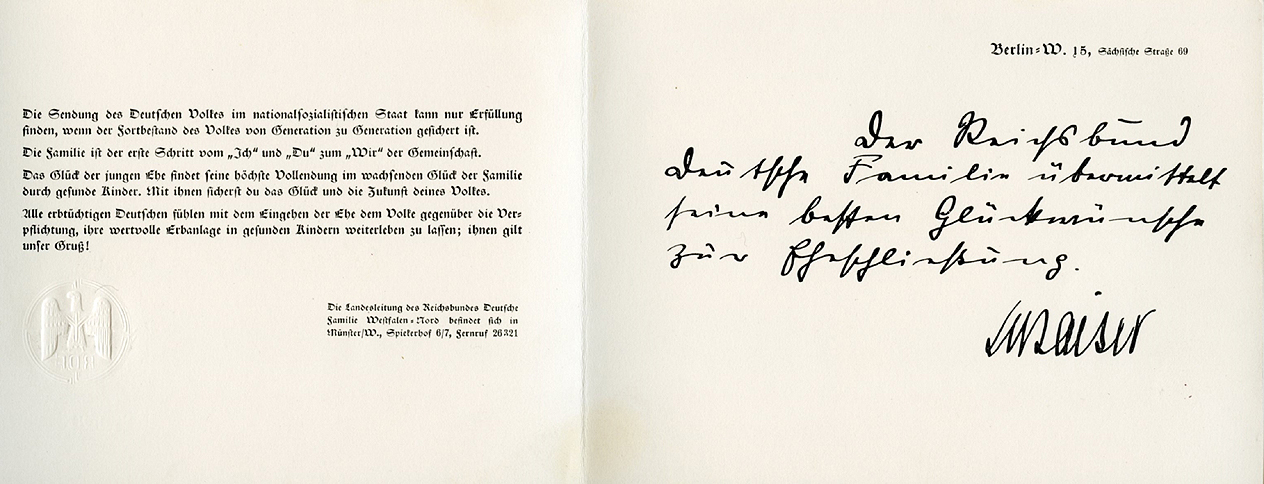 Die Sendung des Deutschen Volkes im nationalsozialistischen Staat kann nur Erfüllung
finden, wenn der Fortbestand des Volkes von Generation zu Generation gesichert ist.
Die Familie ist der erste Schritt vom „Ich“ und „Du“ zum „Wir“ der Gemeinschaft.
Das Glück der jungen Ehe findet seine höchste Vollendung im wachsenden Glück der Familie
durch gesunde Kinder. Mit ihnen sicherst du das Glück und die Zukunft deines Volkes.
Alle erbtüchtigen Deutschen fühlen mit dem Eingehen der Ehe dem Volke gegenüber die Ver-
pflichtung, ihre wertvolle Erbanlage in gesunden Kindern weiterleben zu lassen; ihnen gilt
unser Gruß!
Die Landesleitung des Reichsbundes Deutsche
Familie Westfalen-Nord befindet sich in
Münster/W., Spiekerhof 6/7, Fernruf 26321
Berlin-W. 15, Sächsische Straße 69
Der Reichsbund
Deutsche Familie übermittelt
seine besten Glückwünsche
zur Eheschließung.